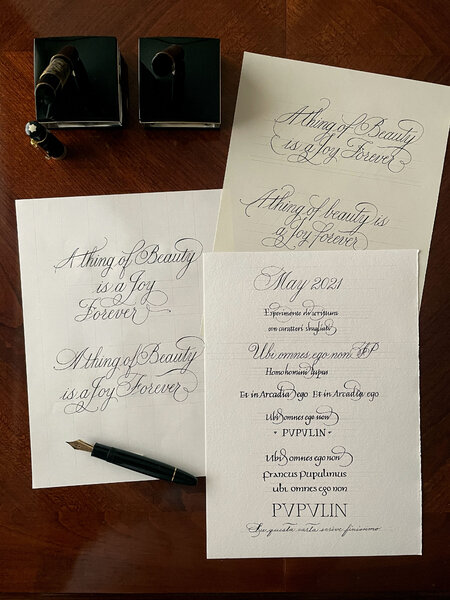 A thing of Beauty
is a Joy Forever
A thing of beauty is
a joy forever
A thing of Beauty
is a Joy
Forever
A thing of Beauty
is a Joy Forever
May 2021
Esperimento di scrittura
con caratteri sbagliati
Ubi omnes ego non FP
Homo homini lupus
Et in Arcadia ego Et in Arcadia ego
Ubi omnes ego non
• PVPVLIN •
Ubi omnes ego non
Francus Pupulinus
ubi omnes ego non
PVPVLIN
Su questa carta scrive finissimo.